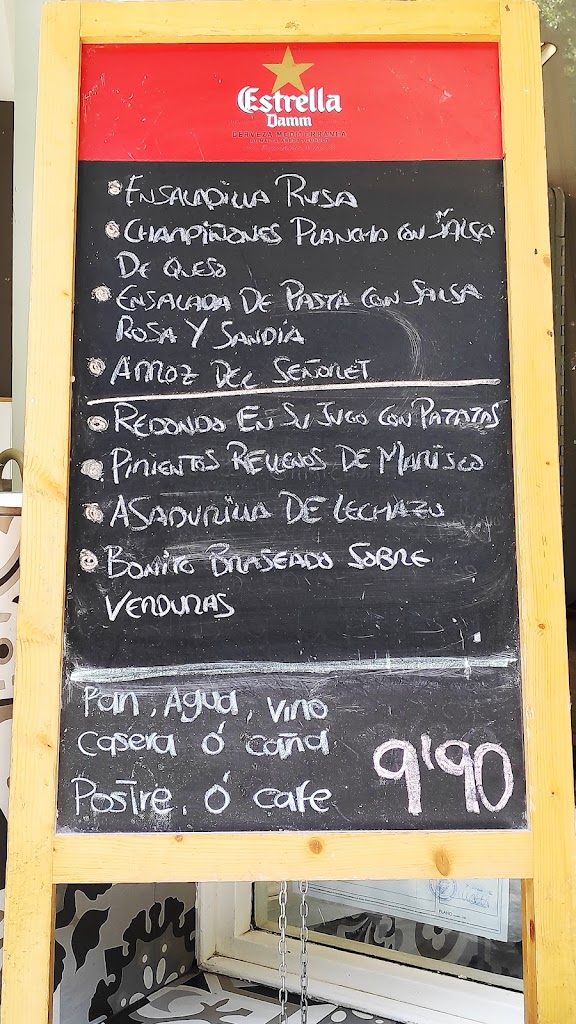 Estrella
Damm
CERVEZA MEDITERRÁNEA
• ENSALADILLA RUSA
• CHAMPIÑONES PLANCHA CON SALSA
DE QUESO
• ENSALADA DE PASTA CON SALSA
ROSA Y SANDÍA
• ARROZ DEL SEÑORET
• REDONDO EN SU JUGO CON PATATAS
• PIMIENTOS RELLENOS DE MARISCO
• ASADURILLA DE LECHAZO
• BONITO BRASEADO SOBRE
VERDURAS
Pan, Agua, vino
casera ó caña
Postre, ó cafe
9'90
PLANO